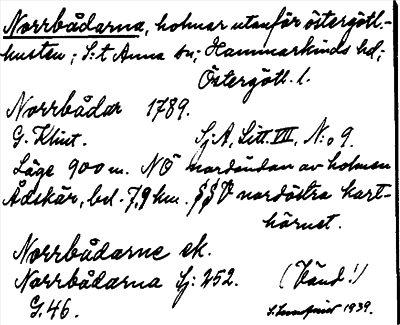 Norrbådarna, holmar utanför östergötl.-
kusten; S:t Anna sn; Hammarkinds hd;
Östergötl. l.
Norrbådar 1789.
G. Klint. Sj:A, Litt. VIII, N:o 9.
Läge 900 m. NÖ nordändan av holmen
Ådskär, bel. 7,9 km. SSV nordöstra kart-
hörnet.
Norrbådarne ek.
Norrbådarna Sj: 252. (Vänd!)
G. 46. 1939.